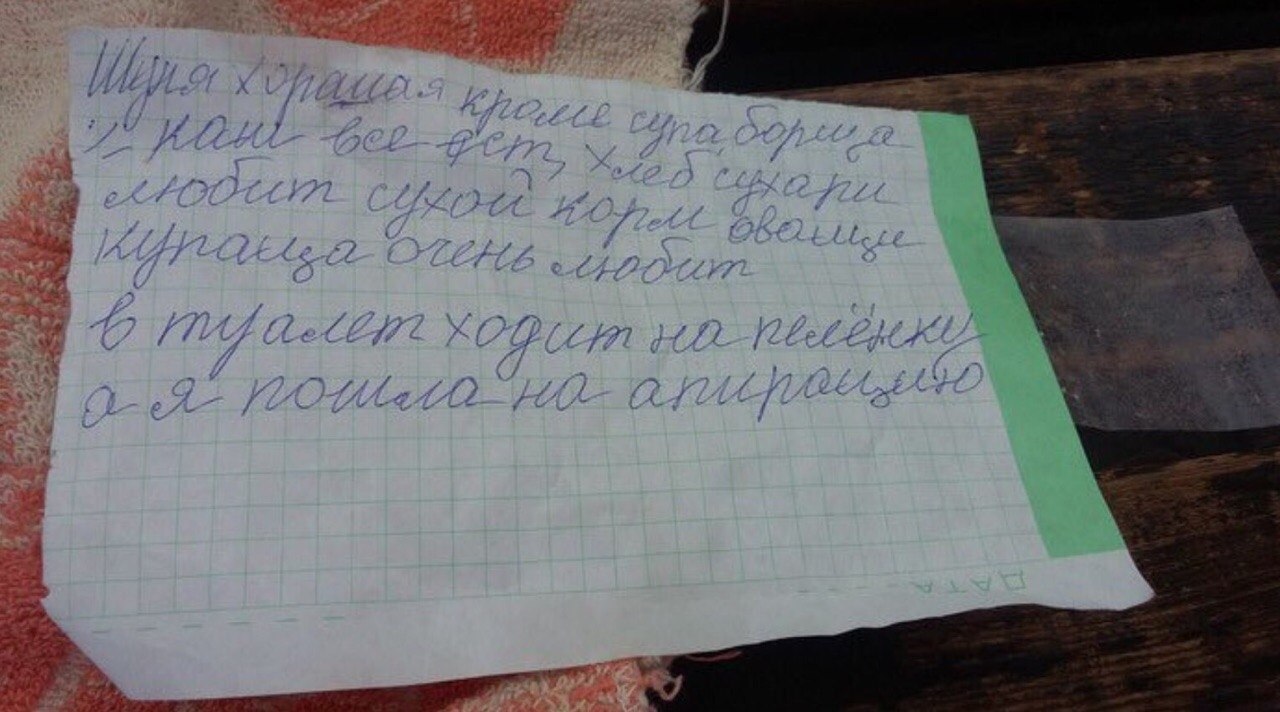 Шуня хорашая кроме супа, борща
и каш все ест, хлеб, сухари
любит сухой корм оващи
купаща очень любит
в туалет ходит на пелёнку
а я пошла на апирацию
ДАТА